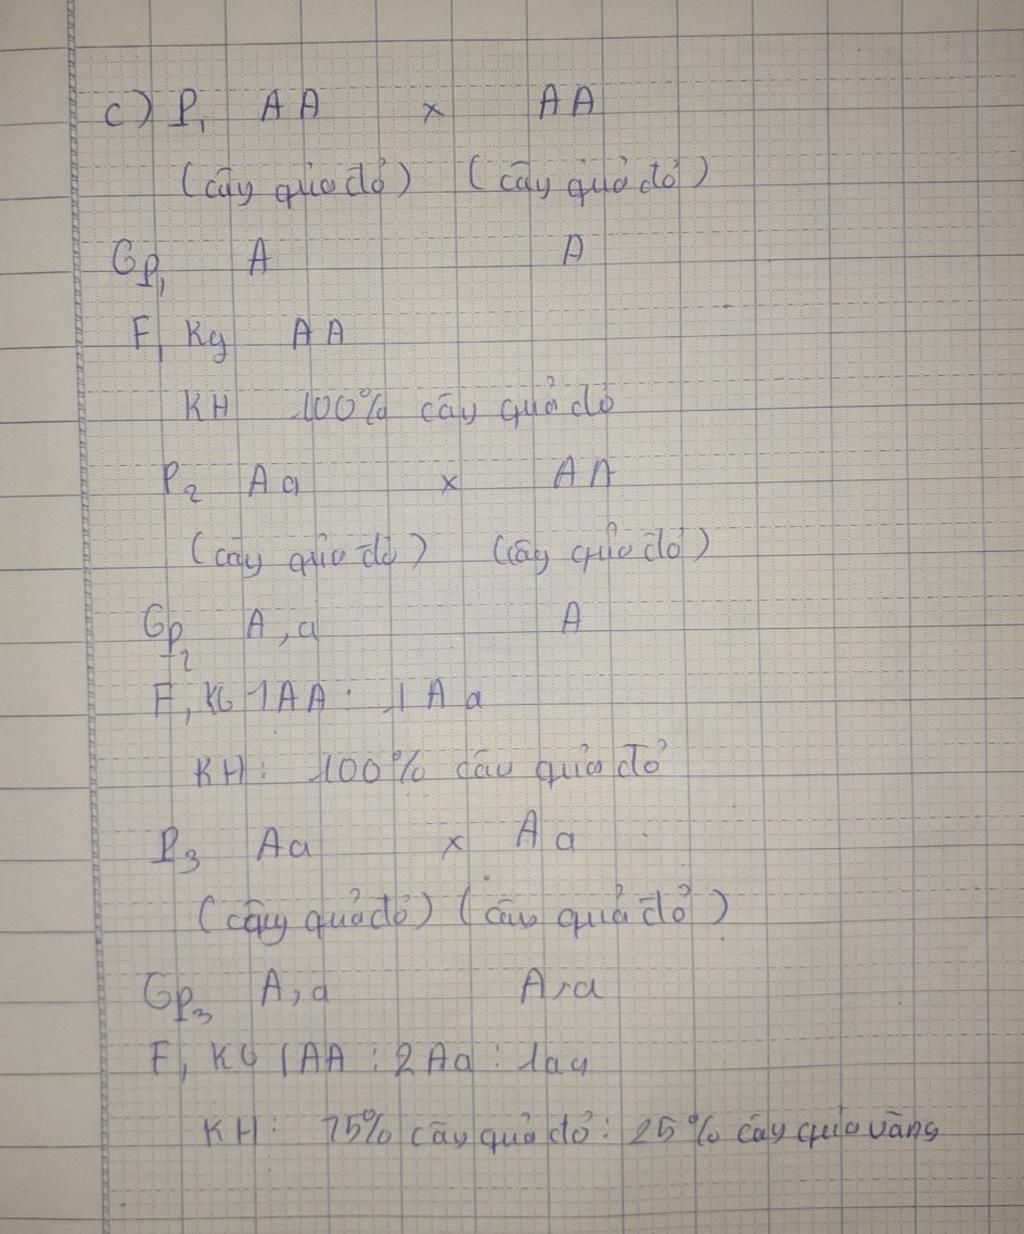 c) P₁ AA x AA
(cây quả đỏ) (cây quả đỏ)
Gp₁ A A
F₁ Kg AA
KH 100% cây quả đỏ
P₂ Aa x AA
(cây quả đỏ) (cây quả đỏ)
Gp₂ A, a A
F₁ KG 1AA : 1Aa
KH: 100% cây quả đỏ
P₃ Aa x Aa
(cây quả đỏ) (cây quả đỏ)
Gp₃ A, a A, a
F₁ KG 1AA : 2Aa : 1aa
KH: 75% cây quả đỏ : 25% cây quả vàng